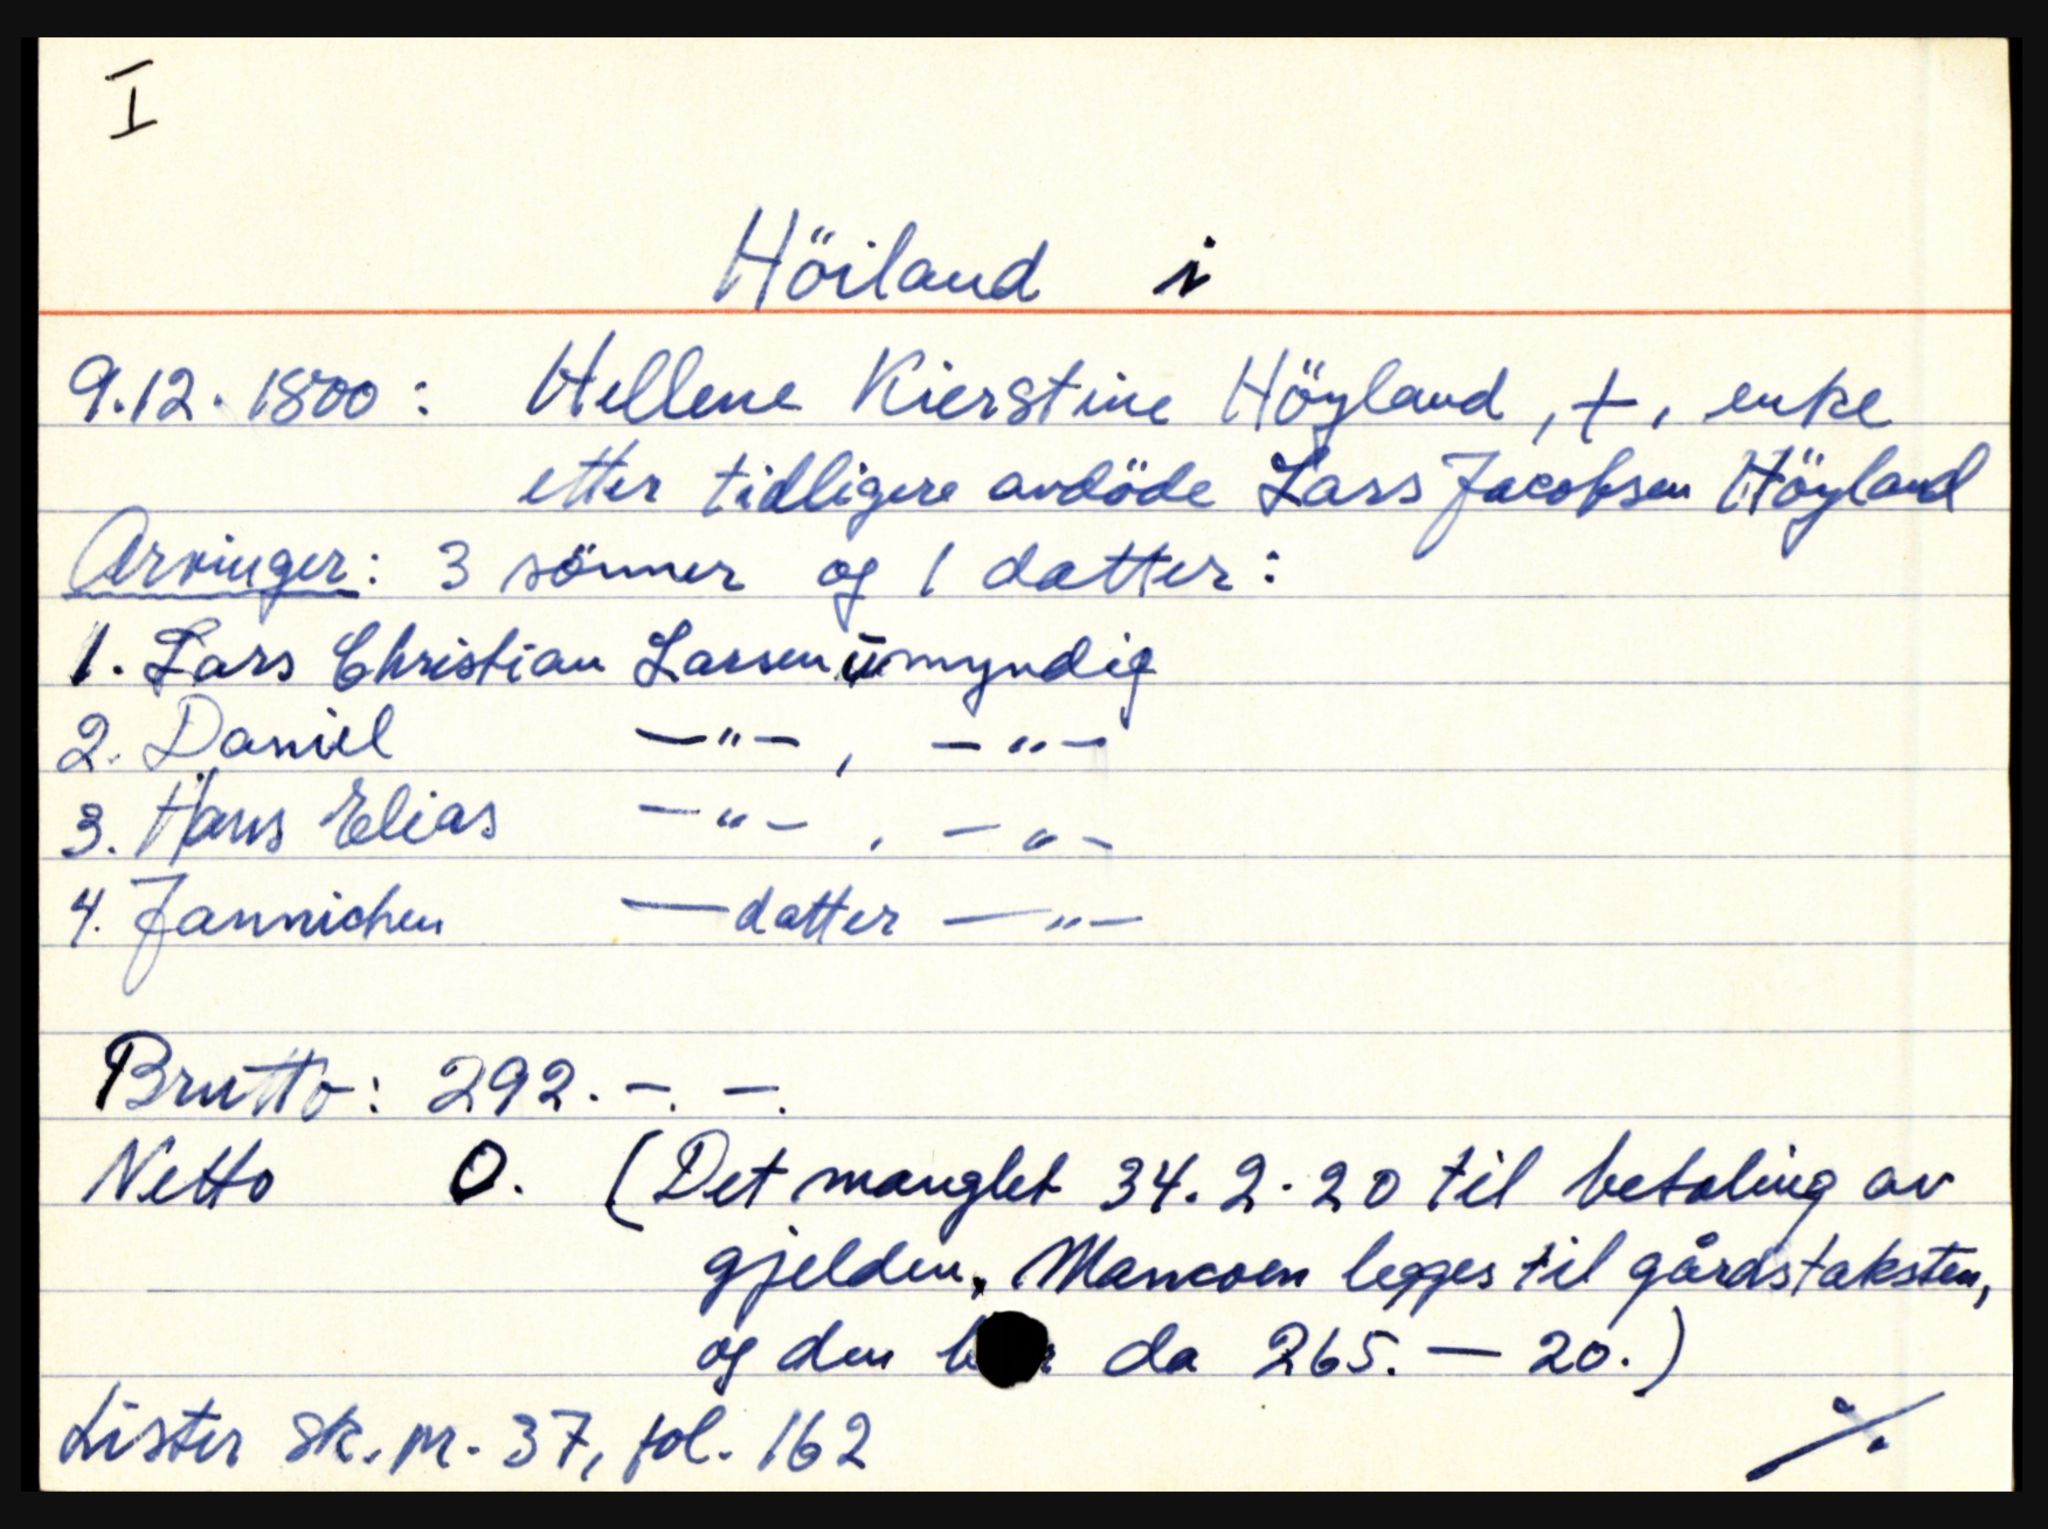 I
Höiland i
9.12.1800: Hellene Kierstine Höyland, +, enke
etter tidligere avdöde Lars Jacobsen Höyland
Arvinger: 3 sönner og 1 datter:
1. Lars Christian Larsen umyndig
2. Daniel —"—, —"—
3. Hans Elias —"—, —"—
4. Jannichen —datter —"—
Brutto: 292. –. –.
Netto 0. (Det manglet 34.2.20 til betaling av
gjelden, Mancoen legges til gårdstaksten,
og den da 265. — 20.)
Lister sk. pr. 37, fol. 162
./.